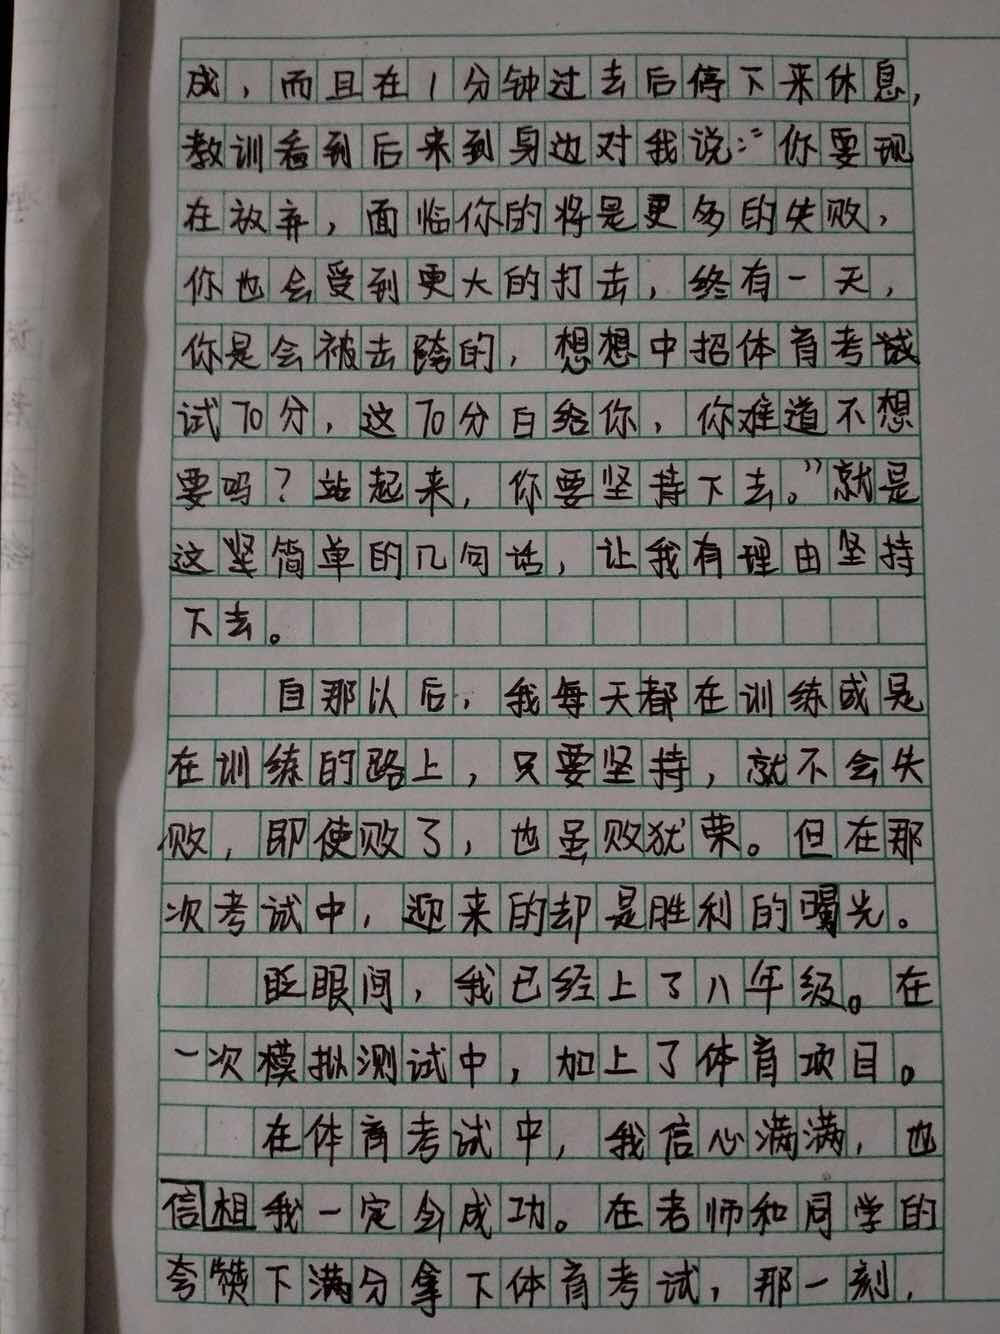 成，而且在1分钟过去后停下来休息，
教训看到后来到身边对我说：“你要现
在放弃，面临你的将是更多的失败，
你也会受到更大的打击，终有一天，
你是会被击跨的，想想中招体育考试
试70分，这70分白给你，你难道不想
要吗？站起来，你要坚持下去。”就是
这坚简单的几句话，让我有理由坚持
下去。
自那以后，我每天都在训练或是
在训练的路上，只要坚持，就不会失
败，即使败了，也虽败犹荣。但在那
次考试中，迎来的却是胜利的曙光。
眨眼间，我已经上了八年级。在
一次模拟测试中，加上了体育项目。
在体育考试中，我信心满满，也
信相我一定会成功。在老师和同学的
夸赞下满分拿下体育考试，那一刻，